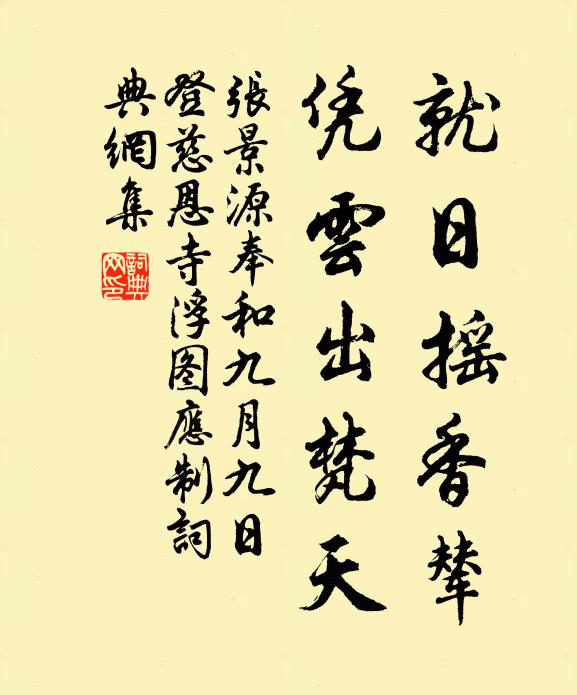 就日摇香辇
凭雲出梵天
張景源奉和九月九日
登慈恩寺浮图應制詞
典網集
詞典
网印